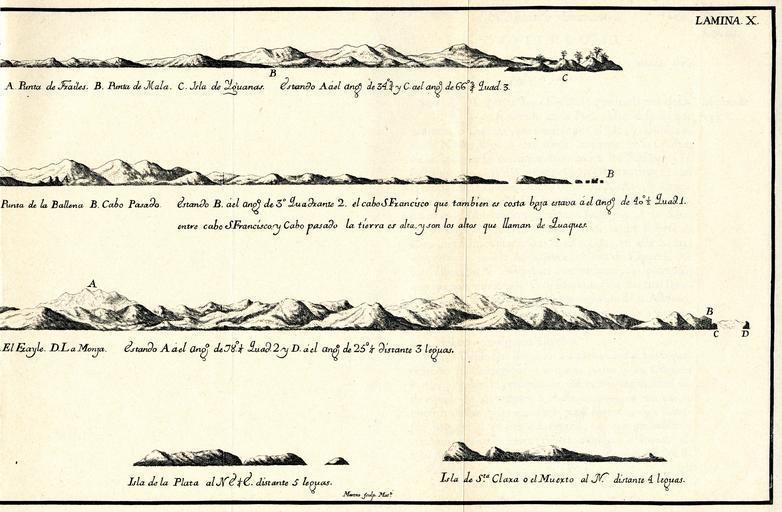 LAMINA. X.
B
C
A. Punta de Frailes. B. Punta de Mala. C. Isla de Yguanas. Estando A á el ang.º de 34°¾ y C á el ang.º de 66°¾ Quad. 3.
B
Punta de la Ballena B. Cabo Pasado. Estando B. á el ang.º de 3° Quadrante 2. el cabo S Francisco que tambien es costa baja estava á el ang.º de 40°½ Quad.1.
entre cabo S Francisco y Cabo pasado la tierra es alta, y son los altos que llaman de Quaques.
A
B
C D
El Frayle. D. La Monja. Estando A á el ang.º de 78°¼ Quad 2 y D. á el ang.º de 25°½ distante 3 leguas.
Isla de la Plata al N E ¼ E. distante 5 leguas.
Isla de S.ta Clara o el Muerto al N. distante 4 leguas.
sculp. Mat.ti